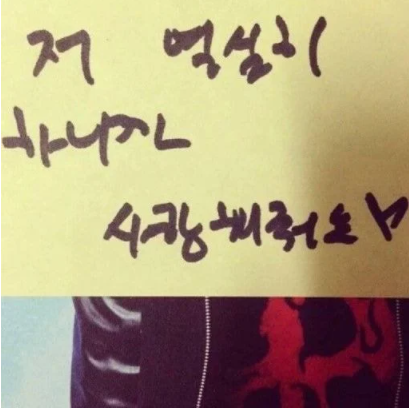 저 열심히
하니까
사랑해줘요